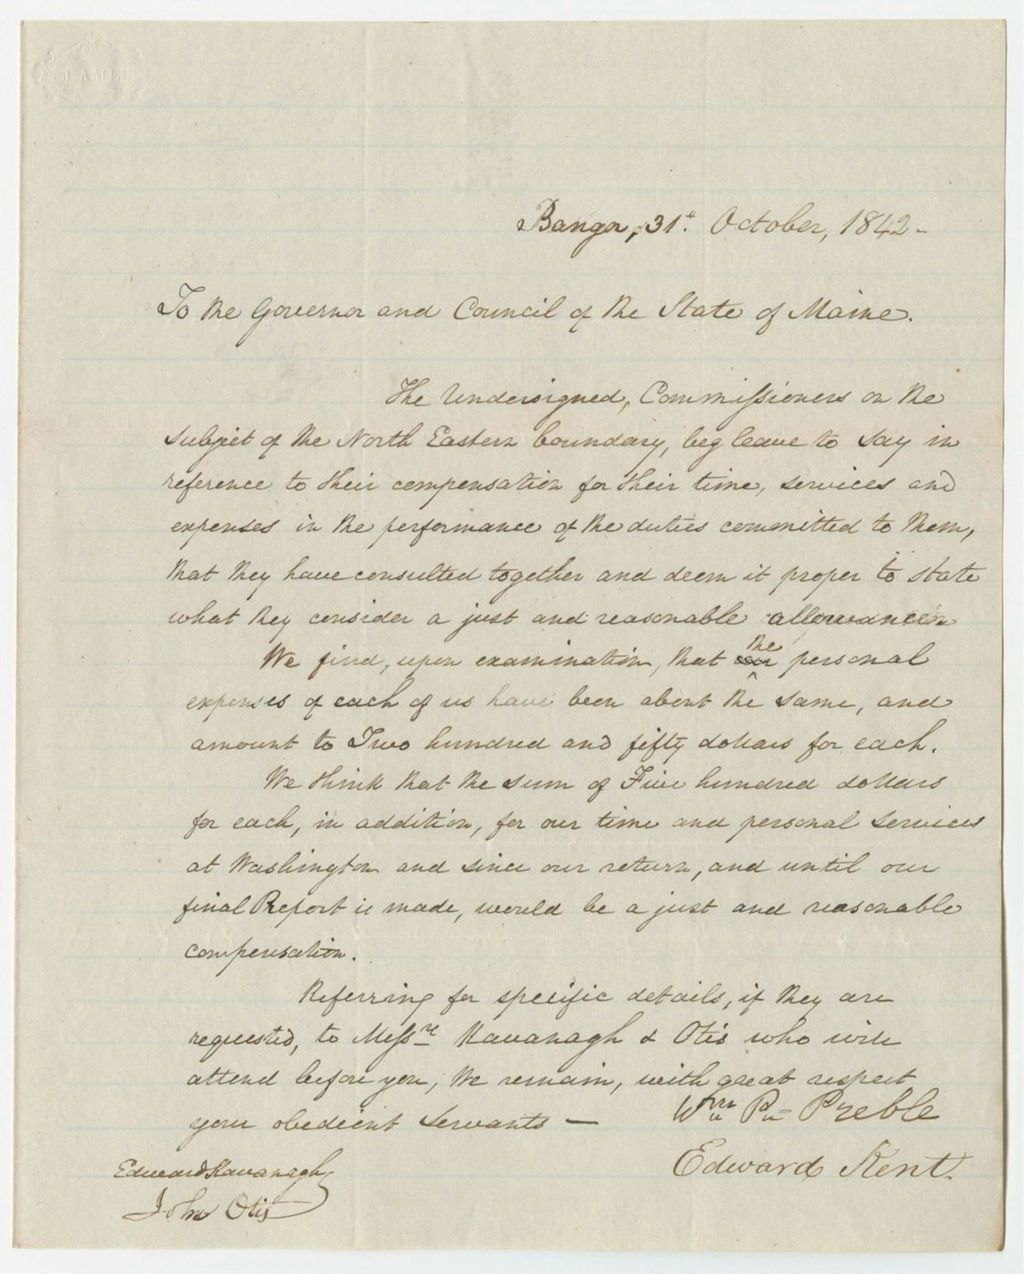 Bangor, 31st. October, 1842-
To the Governor and Council of the State of Maine.
The Undersigned, Commissioners on the
subject of the North Eastern boundary, beg leave to say in
reference to their compensation for their time, services and
expenses in the performance of the duties committed to them,
that they have consulted together and deem it proper to state
what they consider a just and reasonable allowance.
We find, upon examination, that the personal
expenses of each of us have been about the same, and
amount to Two hundred and fifty dollars for each.
We think that the sum of Five hundred dollars
for each, in addition, for our time and personal services
at Washington and since our return, and until our
final Report is made, would be a just and reasonable
compensation.
Referring for specific details, if they are
requested, to Messrs Kavanagh & Otis who will
attend before you, We remain, with great respect
your obedient servants —
Wm P. Preble
Edward Kent.
Edward Kavanagh
John Otis